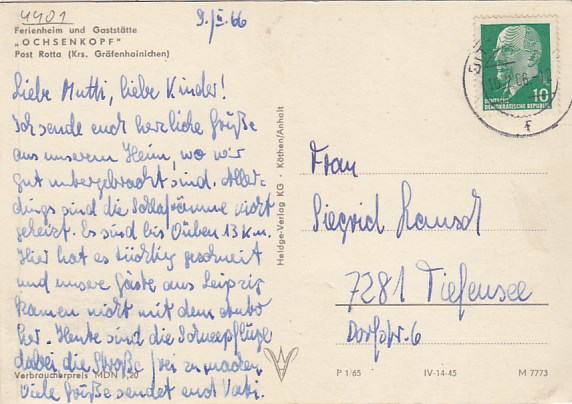 4401
9./II.66
Ferienheim und Gaststätte
„OCHSENKOPF"
Post Rotta (Krs. Gräfenhainichen)
Liebe Mutti, liebe Kinder!
Ich sende euch herzliche Grüße
aus unserem Heim, wo wir
gut untergebracht sind. Aller-
dings sind die Schlafräume nicht
geheizt. Es sind bis Düben 13 Km.
Hier hat es tüchtig geschneit
und unsere Gäste aus Leipzig
kamen nicht mit dem Auto
her. Heute sind die Schneepflüge
dabei die Straße frei zu machen.
Viele Grüße sendet euch Vati.
Verbraucherpreis MDN 0,20
Heldge-Verlag KG · Köthen/Anhalt
DEUTSCHE
DEMOKRATISCHE REPUBLIK
10
f
Frau
Siegrid
7281 Tiefensee
Dorfstr. 6
P 1/65 IV-14-45 M 7773